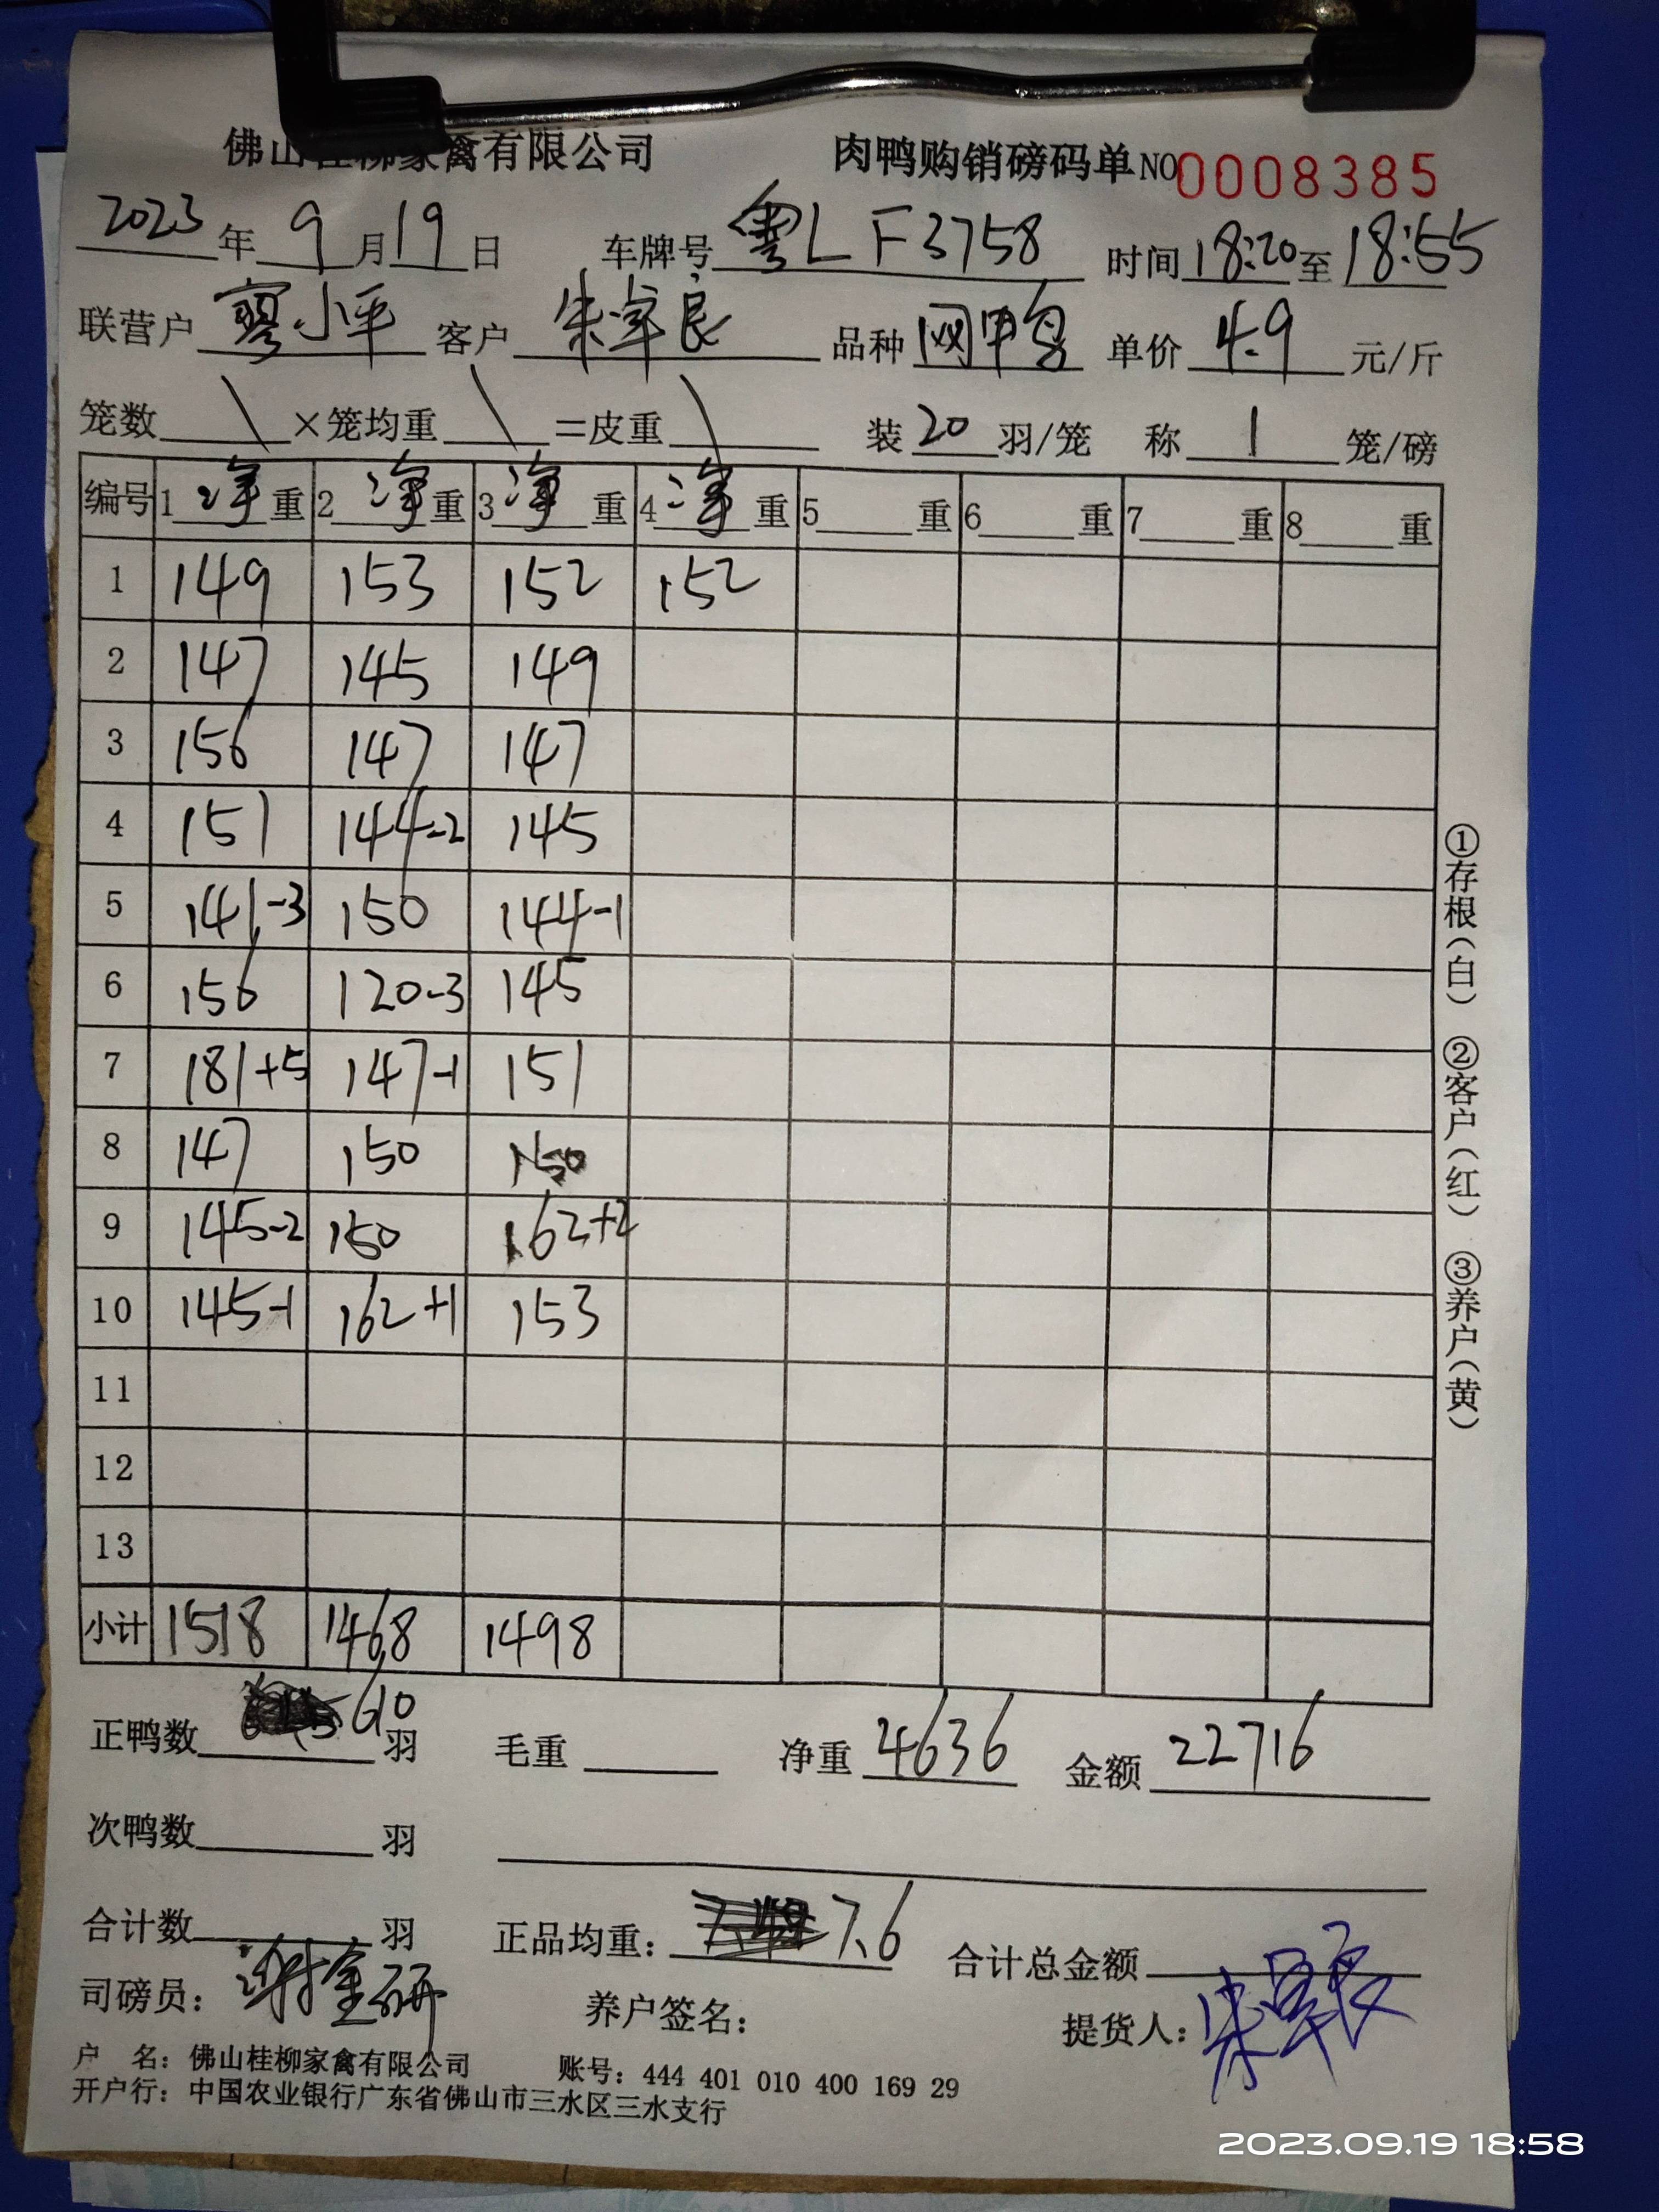 佛山桂柳家禽有限公司 肉鸭购销磅码单 NO 0008385
2023年9月19日 车牌号 粤L F3758 时间 18:20 至 18:55
联营户 廖小平 客户 朱卓良 品种 网甲鸟 单价 4.9 元/斤
笼数 \ ×笼均重 \ =皮重 \ 装 20 羽/笼 称 1 笼/磅
编号 1 净 重 2 净 重 3 净 重 4 净 重 5 重 6 重 7 重 8 重
1 149 153 152 152
2 147 145 149
3 156 147 147
4 151 144-2 145
5 141-3 150 144-1
6 156 120-3 145
7 181+5 147-1 151
8 147 150 150
9 145-2 150 162+2
10 145-1 162+1 153
11
12
13
小计 1518 1468 1498
正鸭数 610 羽 毛重 净重 4636 金额 22716
次鸭数 羽
合计数 羽 正品均重: 7.6 合计总金额
司磅员: 养户签名: 提货人: 朱卓良
户 名: 佛山桂柳家禽有限公司 账号: 444 401 010 400 169 29
开户行: 中国农业银行广东省佛山市三水区三水支行
①存根(白) ②客户(红) ③养户(黄)
2023.09.19 18:58